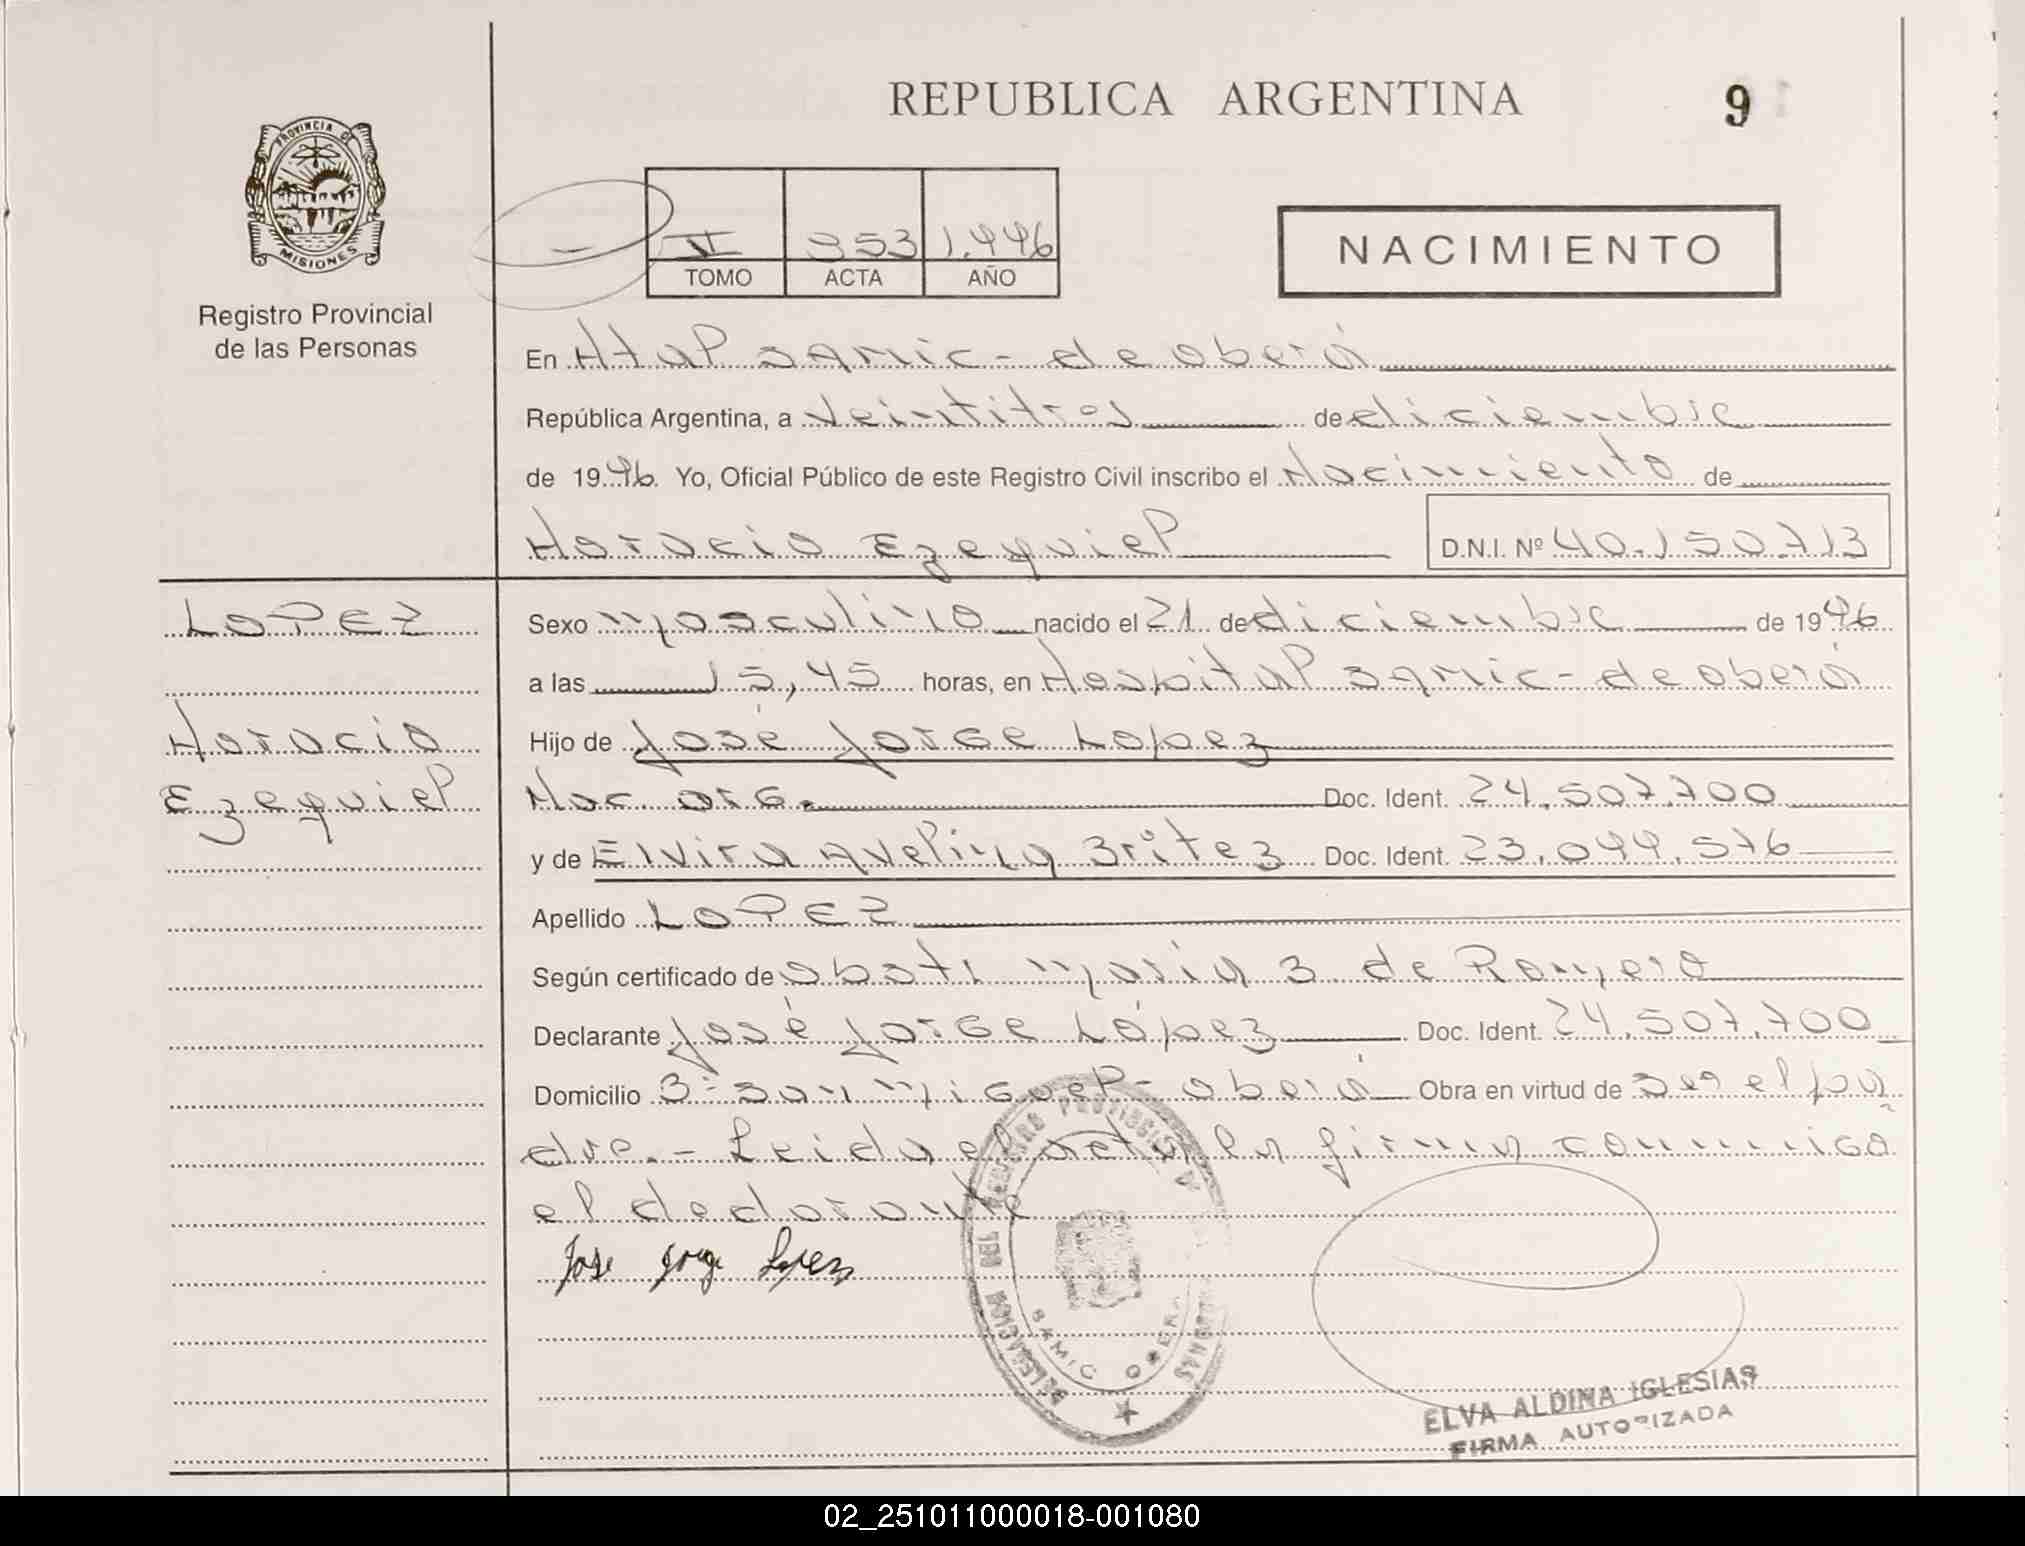 REPUBLICA ARGENTINA
9
PROVINCIA DE
MISIONES
Registro Provincial
de las Personas
V 353 1.996
TOMO ACTA AÑO
NACIMIENTO
En Htal samic - de oberá
República Argentina, a veintitres de diciembre
de 1996. Yo, Oficial Público de este Registro Civil inscribo el Nacimiento de
Horacio Ezequiel D.N.I. Nº 40.150.713
LOPEZ
Horacio
Ezequiel
Sexo masculino nacido el 21 de diciembre de 1996
a las 15,45 horas, en Hospital samic - de oberá
Hijo de José Jorge Lopez
Nac arg. Doc. Ident. 24.507.700
y de Elvira Avelina Britez Doc. Ident. 23.099.576
Apellido LOPEZ
Según certificado de maria B de Romero
Declarante José Jorge López Doc. Ident. 24.507.700
Domicilio Bº san miguel - oberá Obra en virtud de ser el pa
dre. - Leida el acta la firma conmigo
el declarante
Jose Jorge Lopez
DELEGACION DEL REGISTRO PROVINCIAL DE PERSONAS
SAMIC OBERA
ELVA ALDINA IGLESIAS
FIRMA AUTORIZADA
02_251011000018-001080